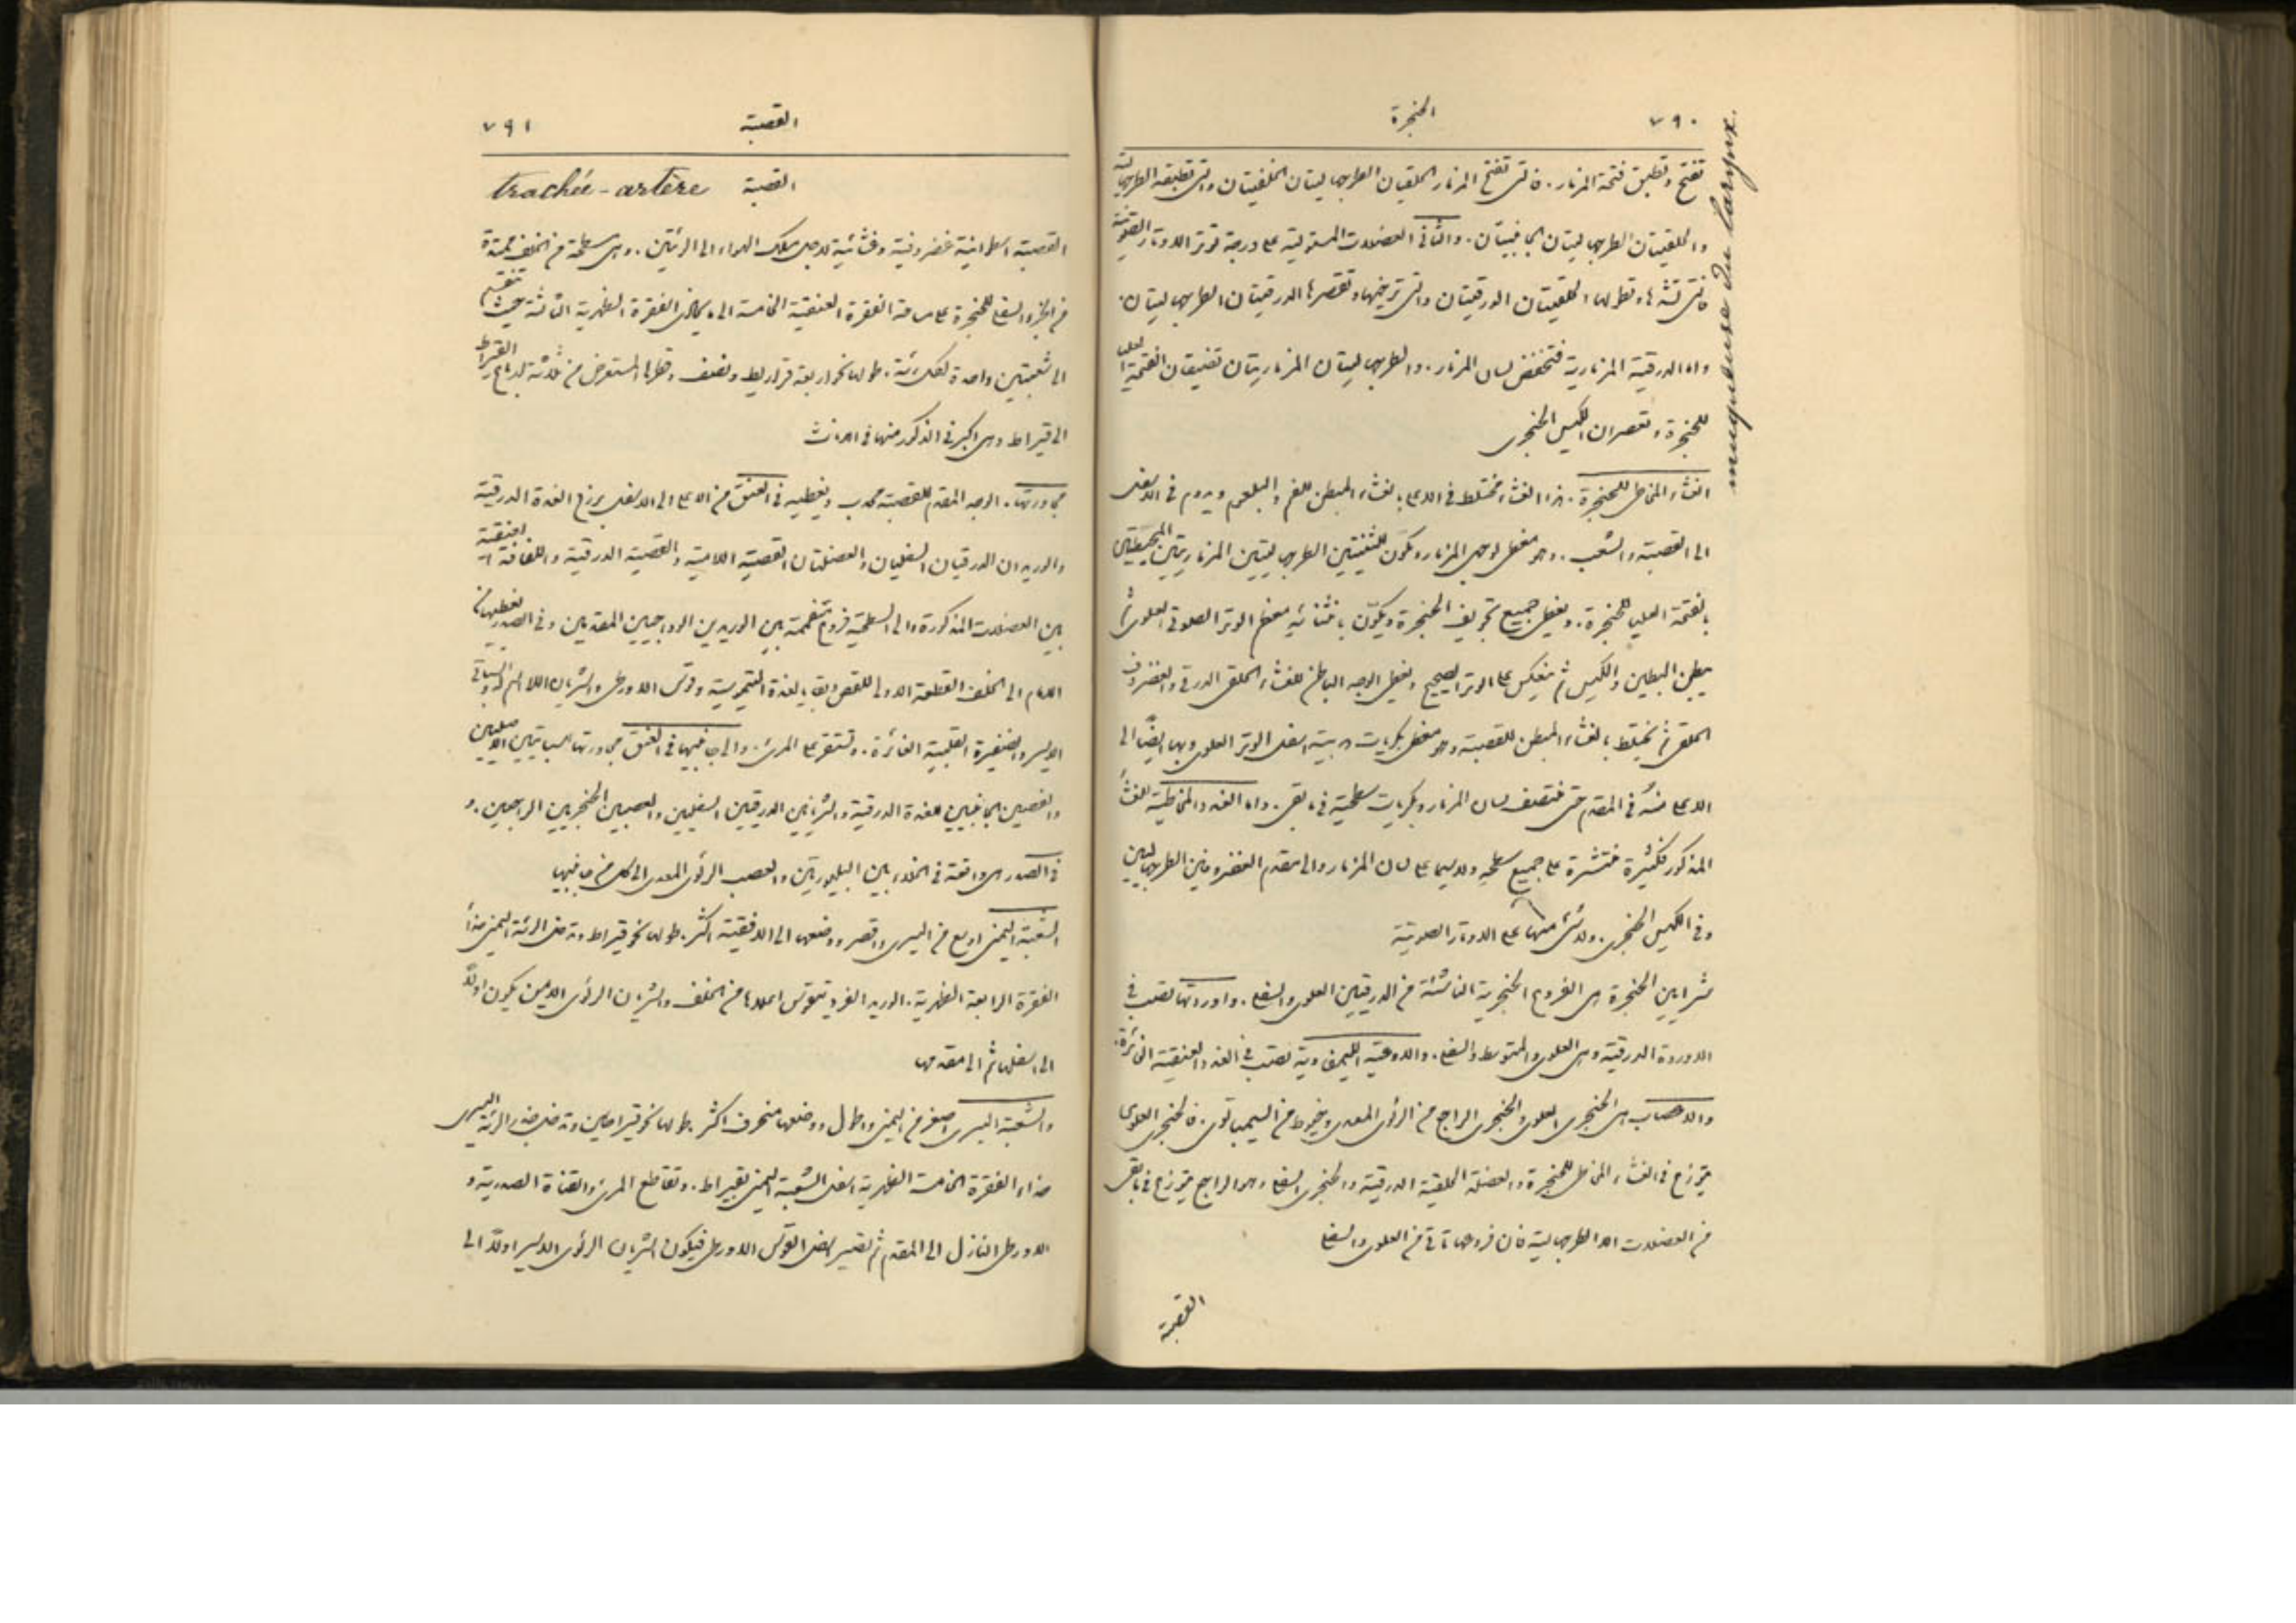 ٧٩٠
الحنجرة
muqueuse du larynx.
تفتح وتطبق فتحة المزمار. فالتي تفتح المزمار الحلقيتان الطرجهاليتان الخلفيتان والتي تطبقه الطرجهالية
والحلقيتان الطرجهاليتان الجانبيتان. والثاني العضلات المستولية على درجة توتر الاوتار الصوتية
فالتي تشدها وتطولها الحلقيتان الدرقيتان والتي ترخيها وتقصرها الدرقيتان الطرجهاليتان.
واما الدرقية المزمارية فتخفض لسان المزمار. والطرجهاليتان المزماريتان تضيقان الفتحة العليا
للحنجرة وتعصران الكيس الحنجري
الغشاء المخاطي للحنجرة. هذا الغشاء مختلط في الاعلى بالغشاء المبطن للفم والبلعوم ويدوم في الاسفل
الى القصبة والشعب. وهو مغطي لوجهي المزمار ومكون للثنيتين الطرجهاليتين المزماريتين المحيطتين
بالفتحة العليا للحنجرة. ويغطي جميع تجويف الحنجرة ويكوّن بانثنائه معظم الوتر الصوتي العلوي ثم
يبطن البطين والكيس ثم ينعكس على الوتر الصحيح ويغطي الوجه الباطن للغشاء الحلقي الدرقي والغضروف
الحلقي ثم يختلط بالغشاء المبطن للقصبة وهو مغطى بكريات هدبية اسفل الوتر العلوي وبها ايضًا الى
الاعلى منه في المقدم حتى منتصف لسان المزمار وبكريات سطحية في ما بقي. واما الغدد المخاطية للغشاء
المذكور فكثيرة منتشرة على جميع سطحه ولاسيما على لسان المزمار والى مقدم الغضروفين الطرجهاليين
وفي الكيس الحنجري. ولا شيء منها على الاوتار الصوتية
شرايين الحنجرة هي الفروع الحنجرية الناشئة من الدرقيين العلوي والسفلي. واوردتها تصب في
الاوردة الدرقية وهي العلوي والمتوسط والسفلي. والاوعية الليمفاوية تصب في الغدد العنقية الغائرة.
والاعصاب هي الحنجري العلوي والحنجري الراجع من الرئوي المعدي وخيوط من السيمباتوي. فالحنجري العلوي
يتوزع في الغشاء المخاطي للحنجرة والعضلة الحلقية الدرقية والحنجري السفلي وهو الراجع يتوزع في ما بقي
من العضلات الا الطرجهالية فان فروعها تاتي من العلوي والسفلي
القصبة
القصبة
٧٩١
القصبة trachée-artère
القصبة اسطوانية غضروفية وغشائية لاجل سلك الهواء الى الرئتين. وهي مسطحة من الخلف ممتدة
من الجزء السفلي للحنجرة على مساحة الفقرة العنقية الخامسة الى ما يحاذي الفقرة الظهرية الثالثة حيث تنقسم
الى شعبتين واحدة لكل رئة. طولها نحو اربعة قراريط ونصف وقطرها المستعرض من ثلاثة ارباع القيراط
الى قيراط وهي اكبر في الذكور منها في الاناث
مجاورتها. الوجه المقدم للقصبة محدب ويغطيه في العنق من الاعلى الى الاسفل برزخ الغدة الدرقية
والوريدان الدرقيان السفليان والعضلتان القصية اللامية والقصية الدرقية واللفافة العنقية
بين العضلات المذكورة والى السطحية فروع متفممة بين الوريدين الوداجيين المقدمين وفي الصدر يغطيها من
الامام الى الخلف القطعة الاولى للقص وبقايا الغدة التيموسية وقوس الاورطي والشريان اللااسم له والسباتي
الايسر والضفيرة القلبية الغائرة. وتستقر على المريء. والى جانبيها في العنق مجاورتها السباتيين الاصليين
والفصين الجانبيين للغدة الدرقية والشريانين الدرقيين السفليين والعصبين الحنجريين الراجعين. و
في الصدر هي واقعة في الخلاء بين البليوريتين والعصب الرئوي المعدي الى كل من جانبيها
الشعبة اليمنى اوسع من اليسرى واقصر ووضعها الى الافقية اكثر. طولها نحو قيراط وتدخل الرئة اليمنى حذاء
الفقرة الرابعة الظهرية. الوريد الفرد يتقوس اعلاها من الخلف والشريان الرئوي الايمن يكون اولًا
الى اسفلها ثم الى مقدمها
والشعبة اليسرى اصغر من اليمنى واطول ووضعها منحرف اكثر. طولها نحو قيراطين وتدخل جذر الرئة اليسرى
حذاء الفقرة الخامسة الظهرية اسفل الشعبة اليمنى بقيراط. وتقاطع المريء والقناة الصدرية و
الاورطي النازل الى المقدم ثم تصير اسفل القوس الاورطي فيكون الشريان الرئوي الايسر اولًا الى